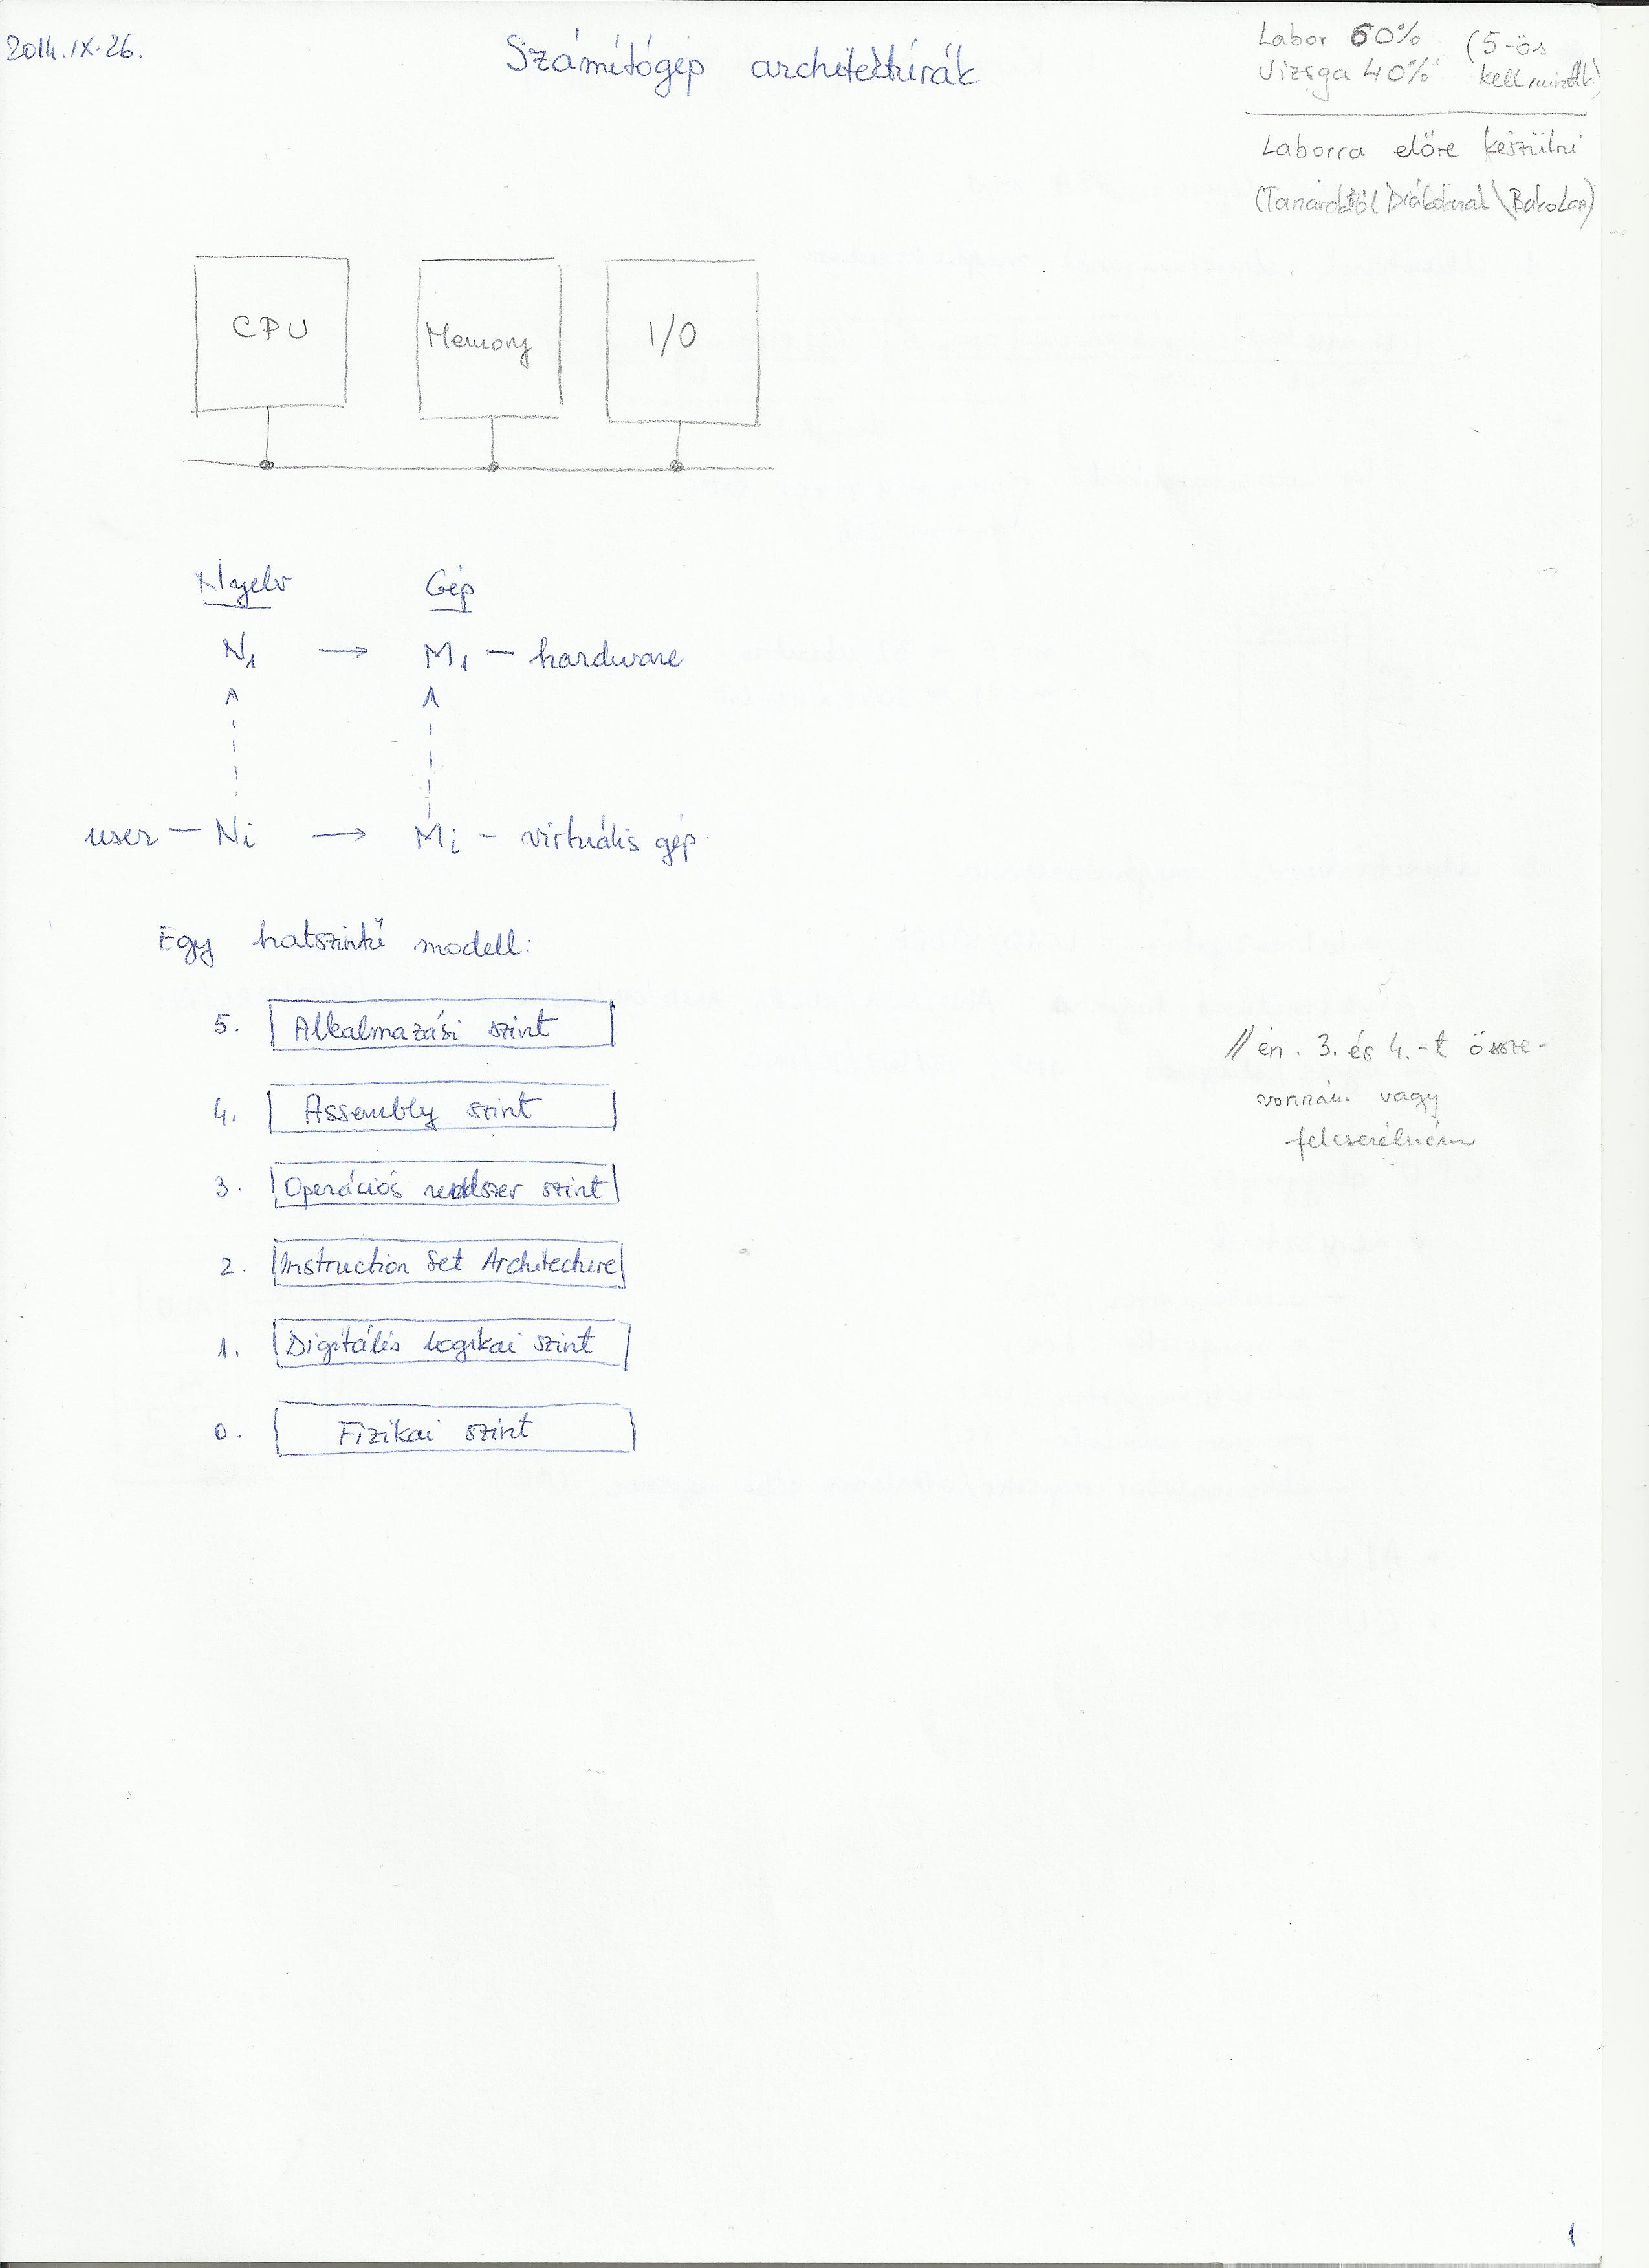 2014.IX.26.
Számítógép architektúrák
Labor 60% (5-ös
Vizsga 40% kell mindk)
Laborra előre készülni
(Tanároktól Diákoknak\BakoLan)
CPU
Memory
I/O
Nyelv Gép
N1 → M1 — hardware
user — Ni → Mi - virtuális gép
Egy hatszintű modell:
5. Alkalmazási szint
4. Assembly szint
3. Operációs rendszer szint
2. Instruction Set Architecture
1. Digitális logikai szint
0. Fizikai szint
// én . 3. és 4.-t össze-
vonnám vagy
felcserélném
1